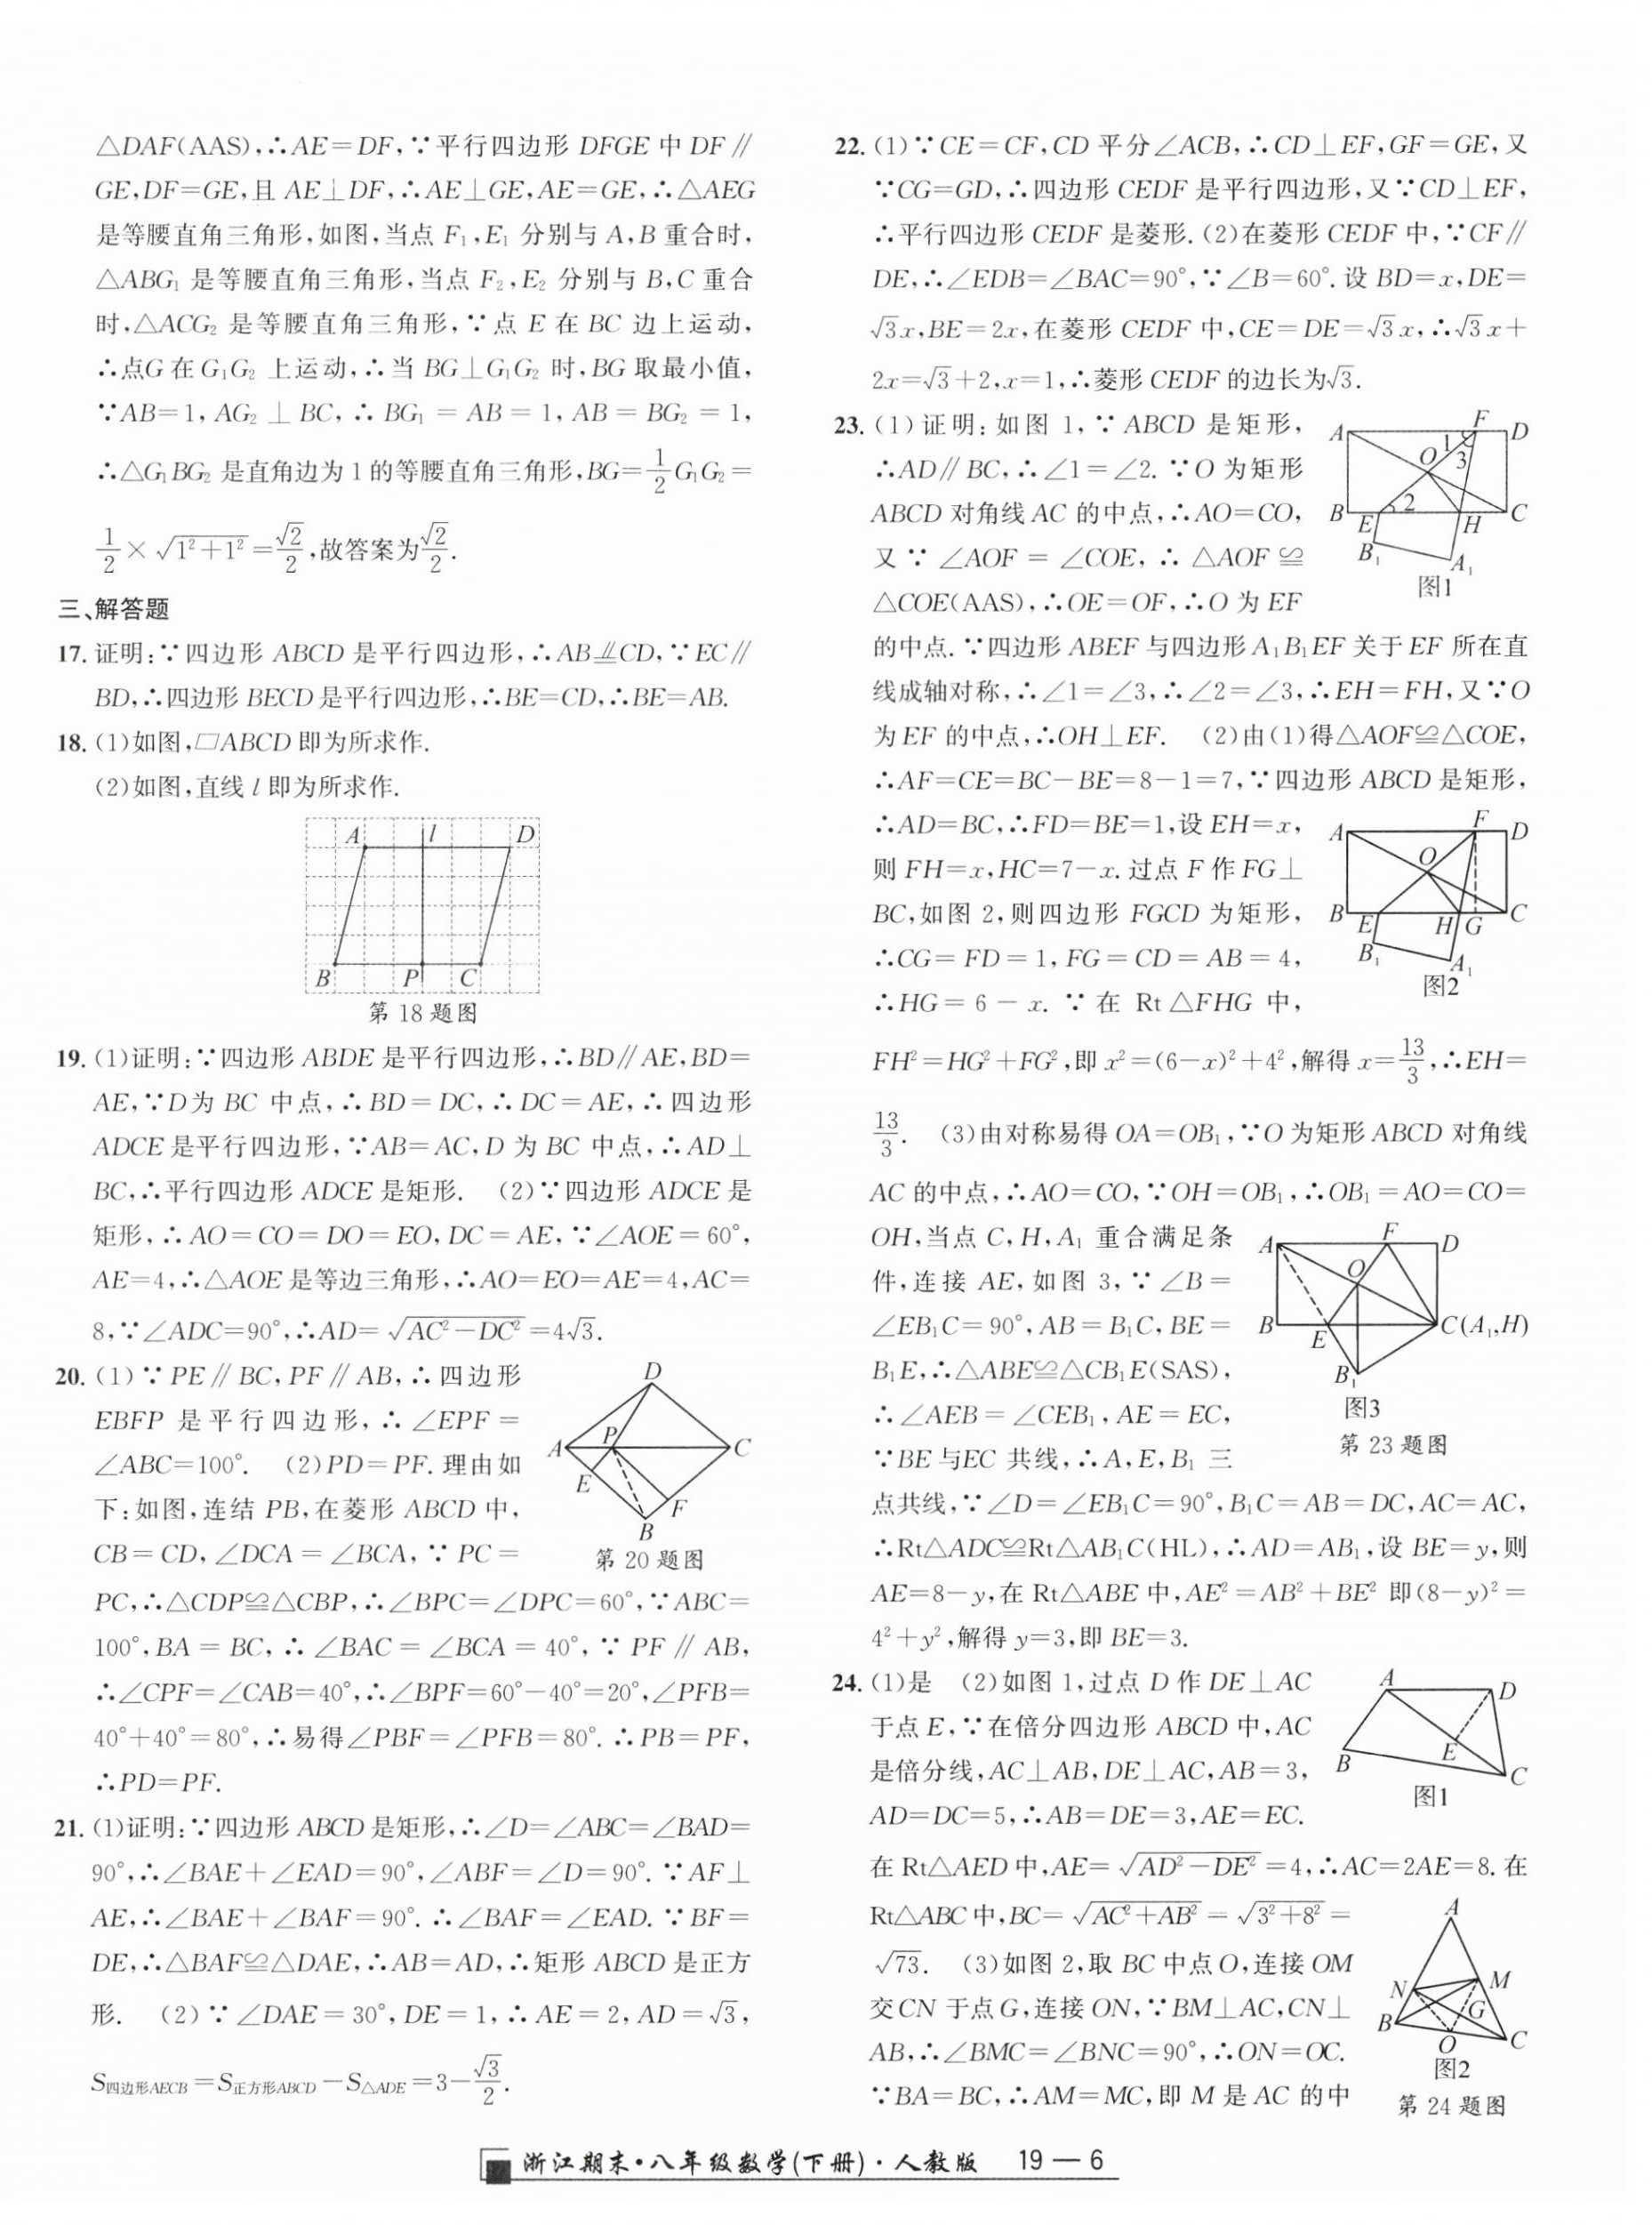 △DAF(AAS),∴AE=DF,∵平行四边形 DFGE 中 DF∥
GE,DF=GE,且 AE⊥DF,∴AE⊥GE,AE=GE,∴△AEG
是等腰直角三角形,如图,当点 F₁,E₁ 分别与 A,B 重合时,
△ABG₁ 是等腰直角三角形,当点 F₂,E₂ 分别与 B,C 重合
时,△ACG₂ 是等腰直角三角形,∵点 E 在 BC 边上运动,
∴点G 在 G₁G₂ 上运动,∴当 BG⊥G₁G₂ 时,BG 取最小值,
∵AB=1,AG₂⊥BC,∴BG₁=AB=1,AB=BG₂=1,
∴△G₁BG₂ 是直角边为1的等腰直角三角形,BG=1/2 G₁G₂=
1/2×√(1²+1²)=√2/2,故答案为√2/2.
三、解答题
17. 证明:∵四边形 ABCD 是平行四边形,∴AB⫽CD,∵EC∥
BD,∴四边形 BECD 是平行四边形,∴BE=CD,∴BE=AB.
18. (1)如图,▱ABCD 即为所求作.
(2)如图,直线 l 即为所求作.
A l D
B P C
第 18 题图
19. (1)证明:∵四边形 ABDE 是平行四边形,∴BD∥AE,BD=
AE,∵D为 BC 中点,∴BD=DC,∴DC=AE,∴四边形
ADCE 是平行四边形,∵AB=AC,D 为 BC 中点,∴AD⊥
BC,∴平行四边形 ADCE 是矩形. (2)∵四边形 ADCE 是
矩形,∴AO=CO=DO=EO,DC=AE,∵∠AOE=60°,
AE=4,∴△AOE 是等边三角形,∴AO=EO=AE=4,AC=
8,∵∠ADC=90°,∴AD=√(AC²−DC²)=4√3.
20. (1)∵PE∥BC,PF∥AB,∴四边形
EBFP 是平行四边形,∴∠EPF=
∠ABC=100°. (2)PD=PF.理由如
下:如图,连结 PB,在菱形 ABCD 中,
CB=CD,∠DCA=∠BCA,∵PC=
D
A P C
E F
B
第 20 题图
PC,∴△CDP≌△CBP,∴∠BPC=∠DPC=60°,∵ABC=
100°,BA=BC,∴∠BAC=∠BCA=40°,∵PF∥AB,
∴∠CPF=∠CAB=40°,∴∠BPF=60°−40°=20°,∠PFB=
40°+40°=80°,∴易得∠PBF=∠PFB=80°.∴PB=PF,
∴PD=PF.
21. (1)证明:∵四边形 ABCD 是矩形,∴∠D=∠ABC=∠BAD=
90°,∴∠BAE+∠EAD=90°,∠ABF=∠D=90°.∵AF⊥
AE,∴∠BAE+∠BAF=90°.∴∠BAF=∠EAD.∵BF=
DE,∴△BAF≌△DAE,∴AB=AD,∴矩形 ABCD 是正方
形. (2)∵∠DAE=30°,DE=1,∴AE=2,AD=√3,
S四边形AECB=S正方形ABCD−S△ADE=3−√3/2.
22. (1)∵CE=CF,CD 平分∠ACB,∴CD⊥EF,GF=GE,又
∵CG=GD,∴四边形 CEDF 是平行四边形,又∵CD⊥EF,
∴平行四边形 CEDF 是菱形.(2)在菱形 CEDF 中,∵CF∥
DE,∴∠EDB=∠BAC=90°,∵∠B=60°.设 BD=x,DE=
√3x,BE=2x,在菱形 CEDF 中,CE=DE=√3x,∴√3x+
2x=√3+2,x=1,∴菱形 CEDF 的边长为√3.
23. (1)证明:如图 1,∵ABCD 是矩形,
∴AD∥BC,∴∠1=∠2.∵O 为矩形
ABCD 对角线 AC 的中点,∴AO=CO,
又∵∠AOF=∠COE,∴△AOF≌
△COE(AAS),∴OE=OF,∴O 为 EF
A F D
O 1 3
B E 2 H C
B₁ A₁
图1
的中点.∵四边形 ABEF 与四边形 A₁B₁EF 关于 EF 所在直
线成轴对称,∴∠1=∠3,∴∠2=∠3,∴EH=FH,又∵O
为 EF 的中点,∴OH⊥EF. (2)由(1)得△AOF≌△COE,
∴AF=CE=BC−BE=8−1=7,∵四边形 ABCD 是矩形,
∴AD=BC,∴FD=BE=1,设 EH=x,
则 FH=x,HC=7−x.过点 F 作 FG⊥
BC,如图 2,则四边形 FGCD 为矩形,
∴CG=FD=1,FG=CD=AB=4,
∴HG=6−x.∵在 Rt△FHG 中,
A F D
O
B E H G C
B₁ A₁
图2
FH²=HG²+FG²,即 x²=(6−x)²+4²,解得 x=13/3,∴EH=
13/3. (3)由对称易得 OA=OB₁,∵O 为矩形 ABCD 对角线
AC 的中点,∴AO=CO,∵OH=OB₁,∴OB₁=AO=CO=
OH,当点 C,H,A₁ 重合满足条
件,连接 AE,如图 3,∵∠B=
∠EB₁C=90°,AB=B₁C,BE=
B₁E,∴△ABE≌△CB₁E(SAS),
∴∠AEB=∠CEB₁,AE=EC,
∵BE 与EC 共线,∴A,E,B₁ 三
A F D
O
B E C(A₁,H)
B₁
图3
第 23 题图
点共线,∵∠D=∠EB₁C=90°,B₁C=AB=DC,AC=AC,
∴Rt△ADC≌Rt△AB₁C(HL),∴AD=AB₁,设 BE=y,则
AE=8−y,在 Rt△ABE 中,AE²=AB²+BE² 即(8−y)²=
4²+y²,解得 y=3,即 BE=3.
24. (1)是 (2)如图 1,过点 D 作 DE⊥AC
于点 E,∵在倍分四边形 ABCD 中,AC
是倍分线,AC⊥AB,DE⊥AC,AB=3,
AD=DC=5,∴AB=DE=3,AE=EC.
A D
B E C
图1
在 Rt△AED 中,AE=√(AD²−DE²)=4,∴AC=2AE=8.在
Rt△ABC 中,BC=√(AC²+AB²)=√(3²+8²)=
√73. (3)如图 2,取 BC 中点 O,连接 OM
交 CN 于点 G,连接 ON,∵BM⊥AC,CN⊥
AB,∴∠BMC=∠BNC=90°,∴ON=OC.
∵BA=BC,∴AM=MC,即 M 是 AC 的中
A
N M
B G
O C
图2
第 24 题图
浙江期末·八年级数学(下册)·人教版 19—6